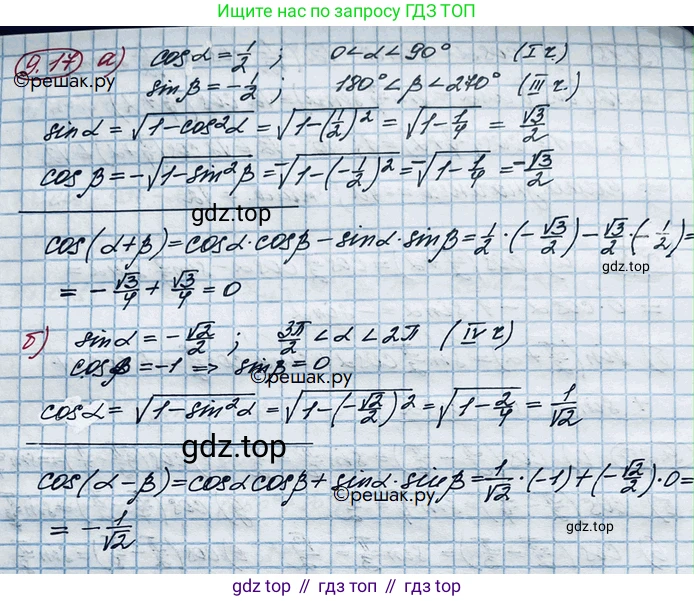 Ищите нас в поисковике по
запросу ГДЗ ТОП
9.17 а) cosα = 1/2 ; 0 < α < 90° (I ч.)
©решак.ру
sinβ = -1/2 ; 180° < β < 270° (III ч.)
sinα = √(1-cos²α) = √(1-(1/2)²) = √(1-1/4) = √3/2
cosβ = -√(1-sin²β) = -√(1-(-1/2)²) = -√(1-1/4) = -√3/2
gdz.top
cos(α+β) = cosα·cosβ - sinα·sinβ = 1/2·(-√3/2) - √3/2·(-1/2) =
gdz.top
= -√3/4 + √3/4 = 0
б) sinα = -√2/2 ; 3π/2 < α < 2π (IV ч)
cosβ = -1 => sinβ = 0
©решак.ру
cosα = √(1-sin²α) = √(1-(-√2/2)²) = √(1-2/4) = 1/√2
gdz.top
cos(α-β) = cosα cosβ + sinα·sinβ = 1/√2·(-1) + (-√2/2)·0 =
©решак.ру
= -1/√2
gdz.top
gdz.top // гдз топ // gdz.top // гдз топ // gdz.top